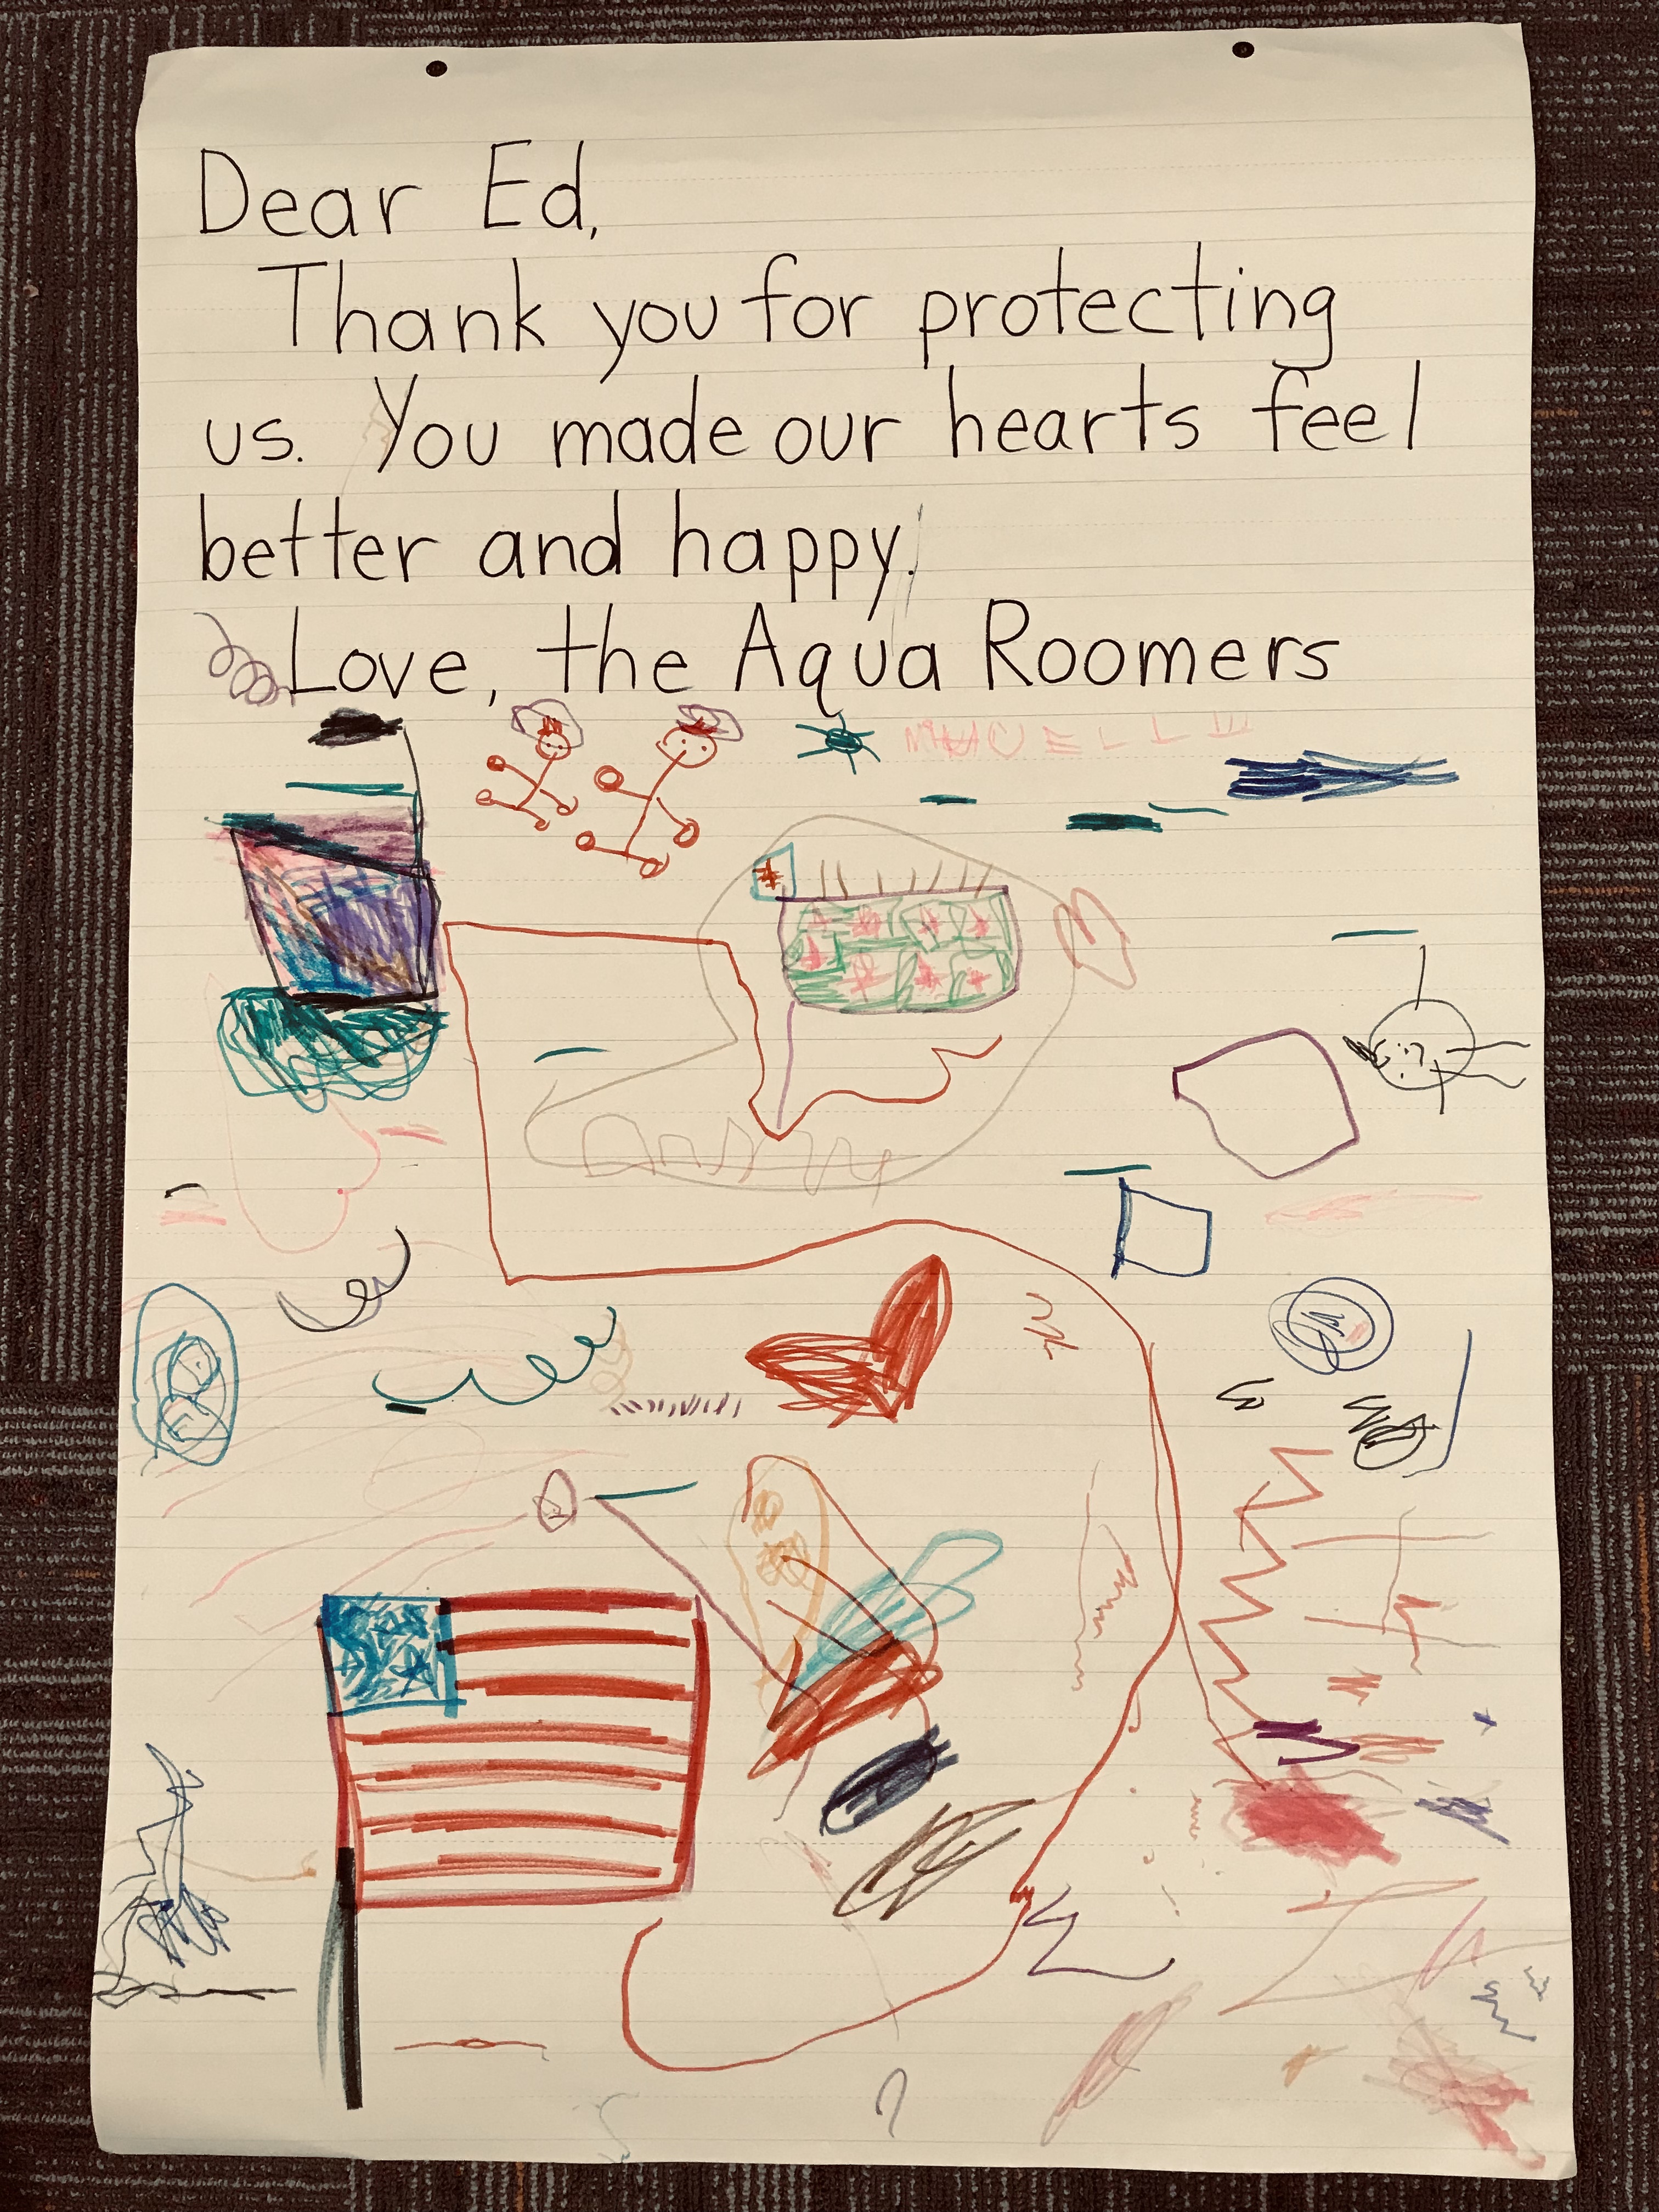 Dear Ed,
Thank you for protecting
us. You made our hearts feel
better and happy.
Love, the Aqua Roomers